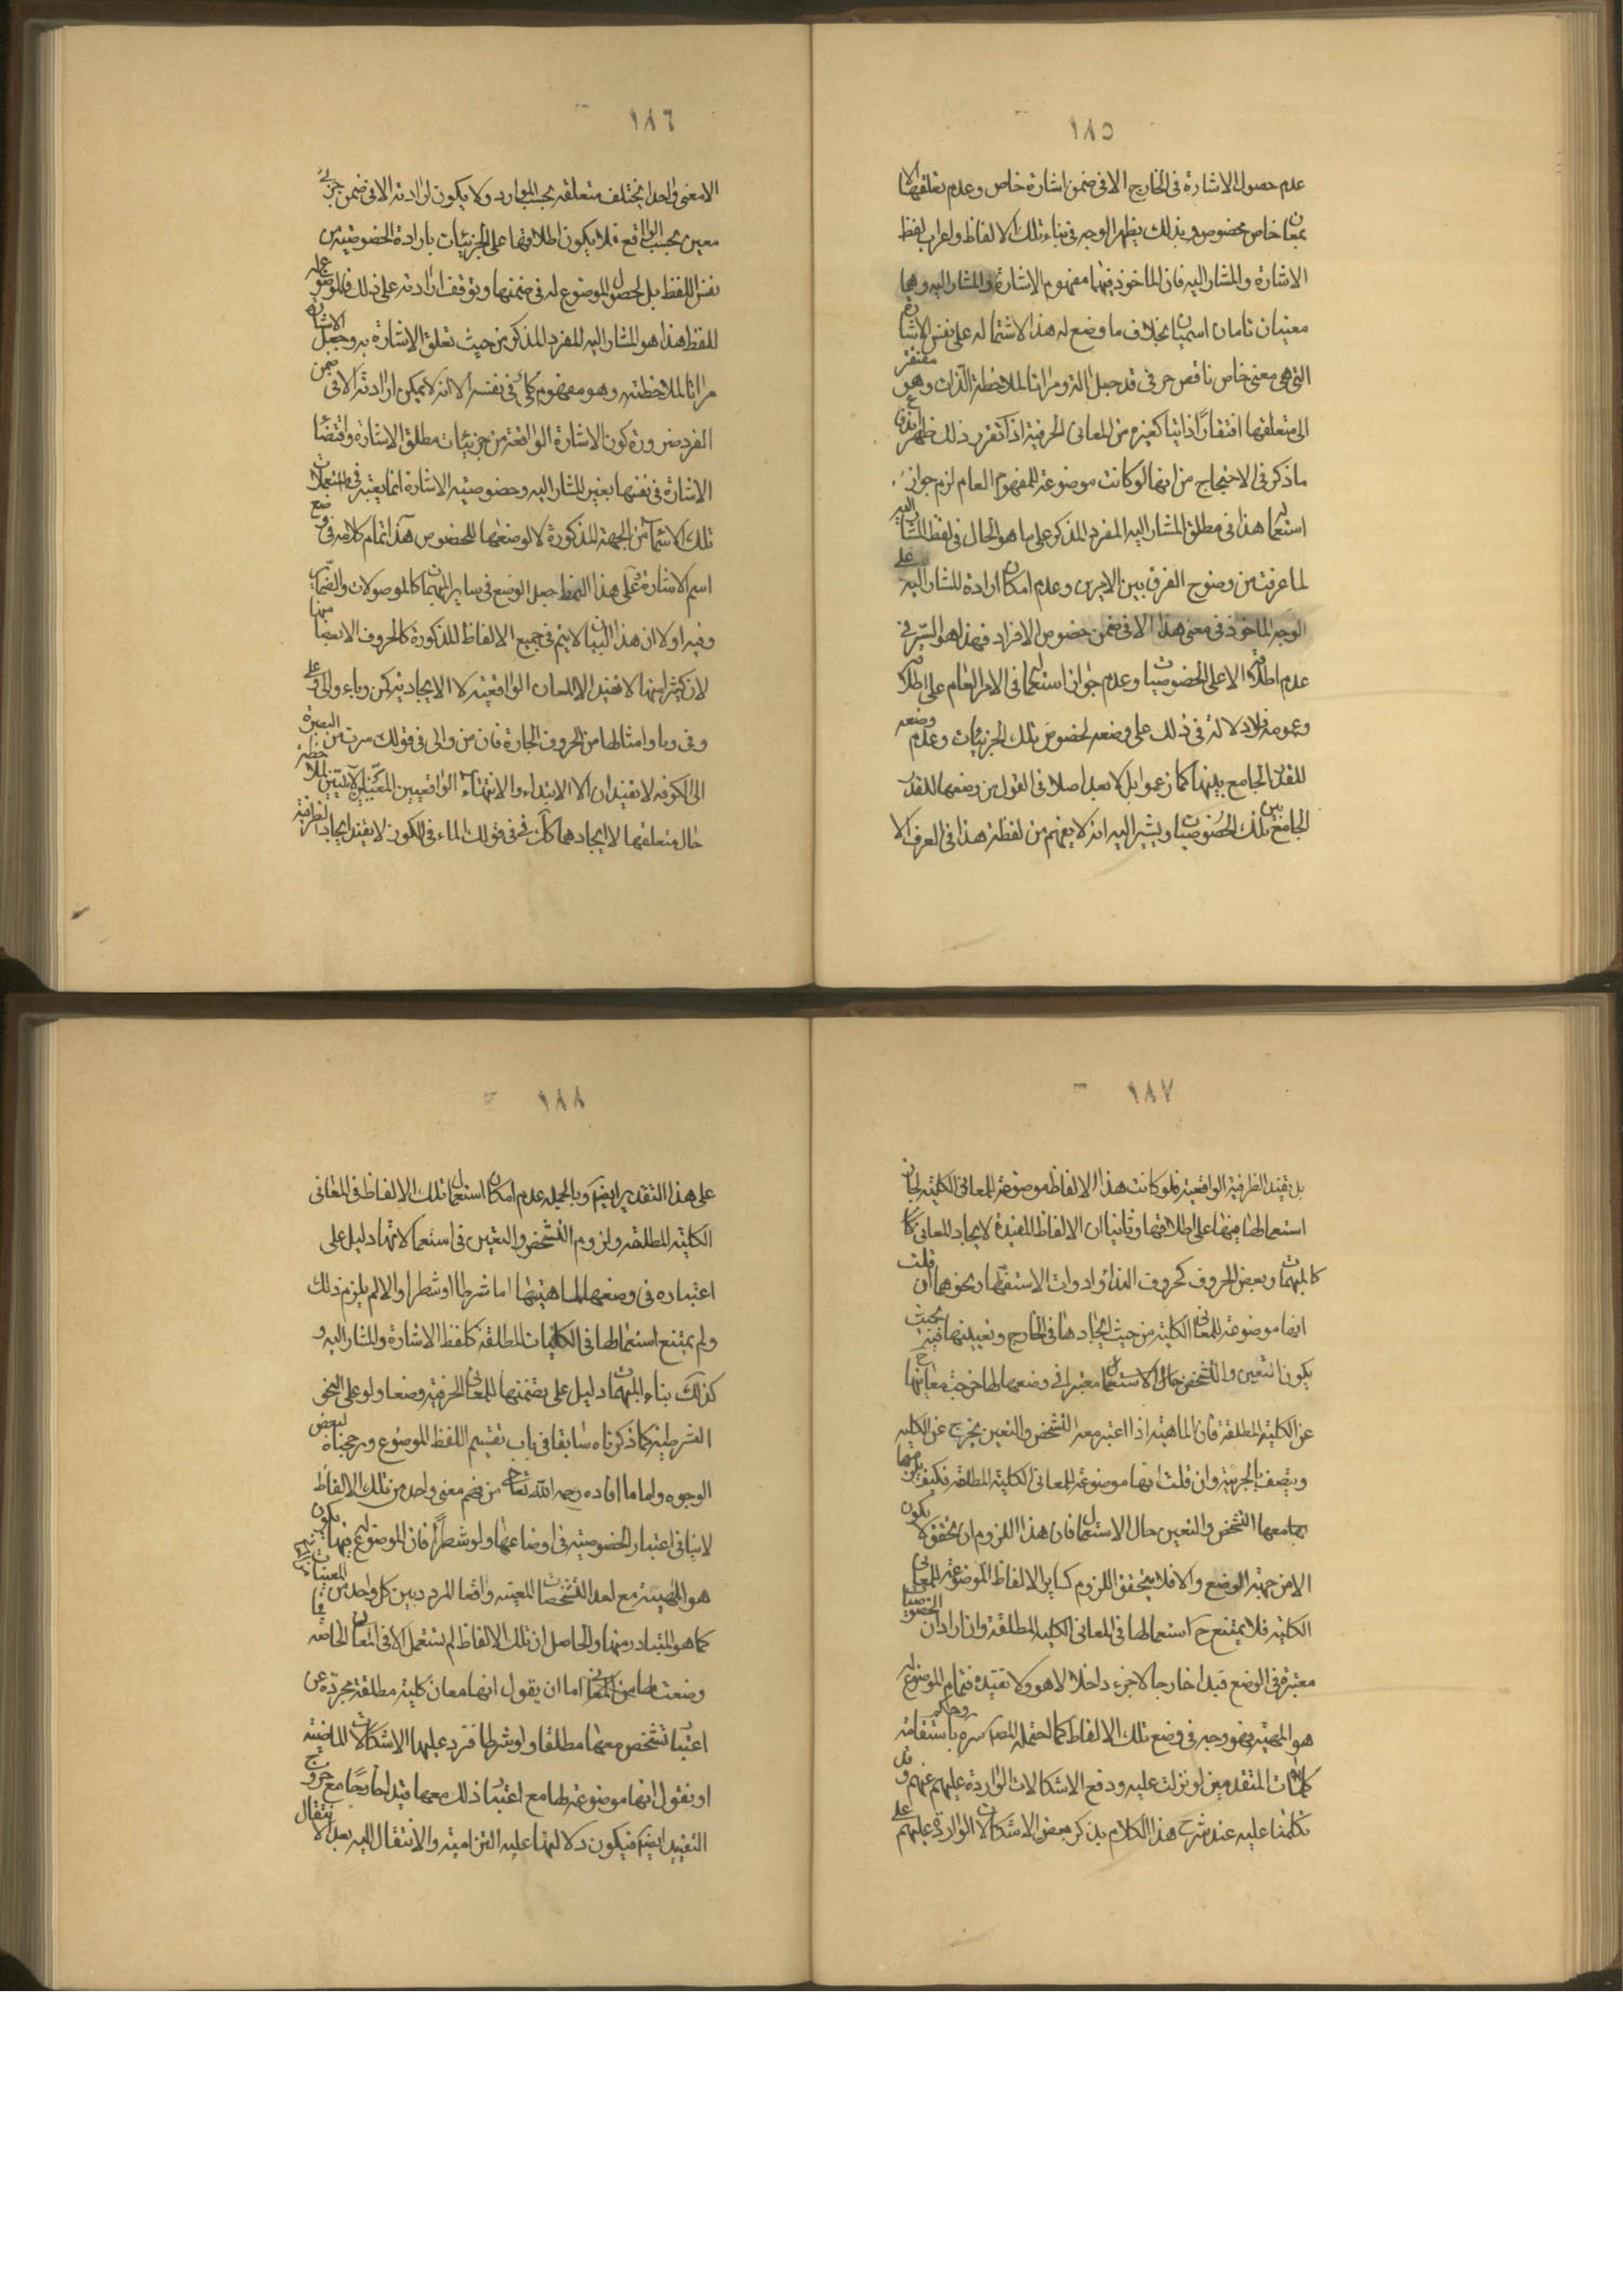 ١٨٥
عدم حصول الاشارة فى الخارج الا فى ضمن اشارة خاص وعدم تعلقها الا
بمعان خاص مخصوص وبذلك يظهر الوجه فى بناء تلك الالفاظ واعراب لفظ
الاشارة والمشار اليه فان الماخوذ فيهما مفهوم الاشارة والمشار اليه وهما
معنيان تامان اسميان بخلاف ما وضع له هذا لاشتماله على نفس الاشارة
التى هى معنى خاص ناقص حرفى قد جعل الة ومراتا لملاحظة الذات وهو مفتقر
الى متعلقها افتقارًا ذاتيا كغيره من المعانى الحرفية اذا تقرر ذلك ظهر اندفاع
ما ذكر فى الاحتجاج من انها لو كانت موضوعة للمفهوم العام لزم جواز
استعمال هذا فى مطلق المشار اليه المفرد المذكر على ما هو الحال فى لفظ المشار اليه
لما عرفت من وضوح الفرق بين الامرين وعدم امكان ارادة المشار اليه على
الوجه الماخوذ فى معنى هذا الا فى ضمن خصوص الافراد فهذا هو السر فى
عدم اطلاقه الا على الخصوصيات وعدم جواز استعمالها فى الامر العام على اطلاقه
وعمومه فلا دلالة فى ذلك على وضعه لخصوص تلك الجزئيات وعدم وضعه
للقدر الجامع بينها كما زعموا بل لا بعد اصلا فى القول من وضعها للقدر
الجامع بين تلك الخصوصيات ويشير اليه انه لا يفهم من لفظة هذا فى العرف الا
١٨٦
الا معنى واحد يختلف متعلقه بحسب الموارد ولا يكون ارادته الا فى ضمن جزئى
معين بحسب الواقع فلا يكون اطلاقها على الجزئيات بارادة الخصوصية من
نفس اللفظ بل لحصول الموضوع له فى ضمنها وتوقف ارادته على ذلك فالموضوع له
للفظ هذا هو المشار اليه المفرد المذكر من حيث تعلق الاشارة به وجعل الاشارة
مراتا لملاحظته وهو مفهوم كلى فى نفسه الا انه لا يمكن ارادته الا فى ضمن
الفرد ضرورة كون الاشارة الواقعة من جزئيات مطلق الاشارة واقتضاء
الاشارة فى نفسها بعين المشار اليه وخصوصية الاشارة انما يعتبر فى استعمالات
تلك الاسماء من الجهة المذكورة لا لوضعها للخصوص هذا تمام كلامه فى وضع
اسم الاشارة وعلى هذا النمط جعل الوضع فى ساير المبهمات كالموصولات والضماير
وفيه اولا ان هذا البيان لا يتم فى جميع الالفاظ المذكورة كالحروف الا بعضا منها
لان كثيرا منها لا تفيد الا المعان الواقعية لا الايجادية كمن وباء والى وعلى
وفى وبا وامثالها من الحروف الجارة فان من والى فى قولك سرت من البصرة
الى الكوفة لا تفيدان الا الابتداء والانتهاء الواقعيين الاليتين لملاحظة
حال متعلقها لا ايجادهما كك فى فى قولك الماء فى الكوز لا يفيد ايجاد الظرفية
١٨٧
بل تفيد الظرفية الواقعية فلو كانت هذا الالفاظ موضوعة للمعانى الكلية لجاز
استعمالها فيها على اطلاقها وثانيا ان الالفاظ المفيدة لايجاد المعانى كا
كالمبهمات وبعض الحروف كحروف النداء وادوات الاستفهام ونحوهما ان قلت
انها موضوعة للمعانى الكلية من حيث ايجادها فى الخارج وتعيينها فيه بحيث
يكون التعين والتشخص حال الاستعمال معتبرا فى وضعها لها خرجت معانيها ح
عن الكلية المطلقة فان الماهية اذا اعتبر معه التشخص والتعين يخرج عن الكلية
ويتصف بالجزئية وان قلت انها موضوعة للمعانى الكلية المطلقة فكيف يلزمها
بها معها التشخص والتعين حال الاستعمال فان هذا اللزوم ان تحقق لا يكون
الا من جهة الوضع والا فلا يتحقق اللزوم كساير الالفاظ الموضوعة للمعانى
الكلية فلا يمتنع ح استعمالها فى المعانى الكلية المطلقة وان اراد ان الخصوصيات
معتبرة فى الوضع قيدا خارجا لا جزء داخلا لا هو ولا تقييده فتمام الموضوع له
هو المهية فهو وجه فى وضع تلك الالفاظ كما احتمله المص سره وحاكم باستقامة
كلمات المتقدمين لو نزلت عليه ودفع الاشكالات الواردة عليهم عنهم وقد
تكلمنا عليه عند شرح هذا الكلام بذكر بعض الاشكالات الواردة عليهم على
١٨٨
على هذا التقدير ايضا وبالجملة عدم امكان استعمال تلك الالفاظ فى المعانى
الكلية المطلقة ولزوم التشخص والتعين فى استعمالاتها دليل على
اعتباره فى وضعها لماهيتها اما شرطا او شطرا والا لم يلزم ذلك
ولم يمتنع استعمالها فى الكليات المطلقة كلفظ الاشارة والمشار اليه و
كذلك بناء المبهمات دليل على تضمنها للمعانى الحرفية وضعا ولو على النحو
الشرطية كما ذكرناه سابقا فى باب تقسيم اللفظ الموضوع ورجحناه لبعض
الوجوه واما ما افاده رحمه الله تعالى من فهم معنى واحد من تلك الالفاظ
لا ينافى اعتبار الخصوصية فى اوضاعها ولو شطرًا فان الموضوع له فيها يكون
هو المهية مع احد التشخصات المعينة واقعا المردد بين كل واحد من المعينات
كما هو المتبادر منها والحاصل ان تلك الالفاظ لم تستعمل الا فى المعان الخاصة
وضعت لها من المعانى اما ان يقول انها معان كلية مطلقة مجردة عن
اعتبار تشخص معها مطلقا ولو شرطا فترد عليها الاشكالات الماضية
او نقول انها موضوعة لها مع اعتبار ذلك معها قيدا خارجا مع خروج
التقييد ايضا فيكون دلالتها عليه التزامية والانتقال اليه بعد الانتقال